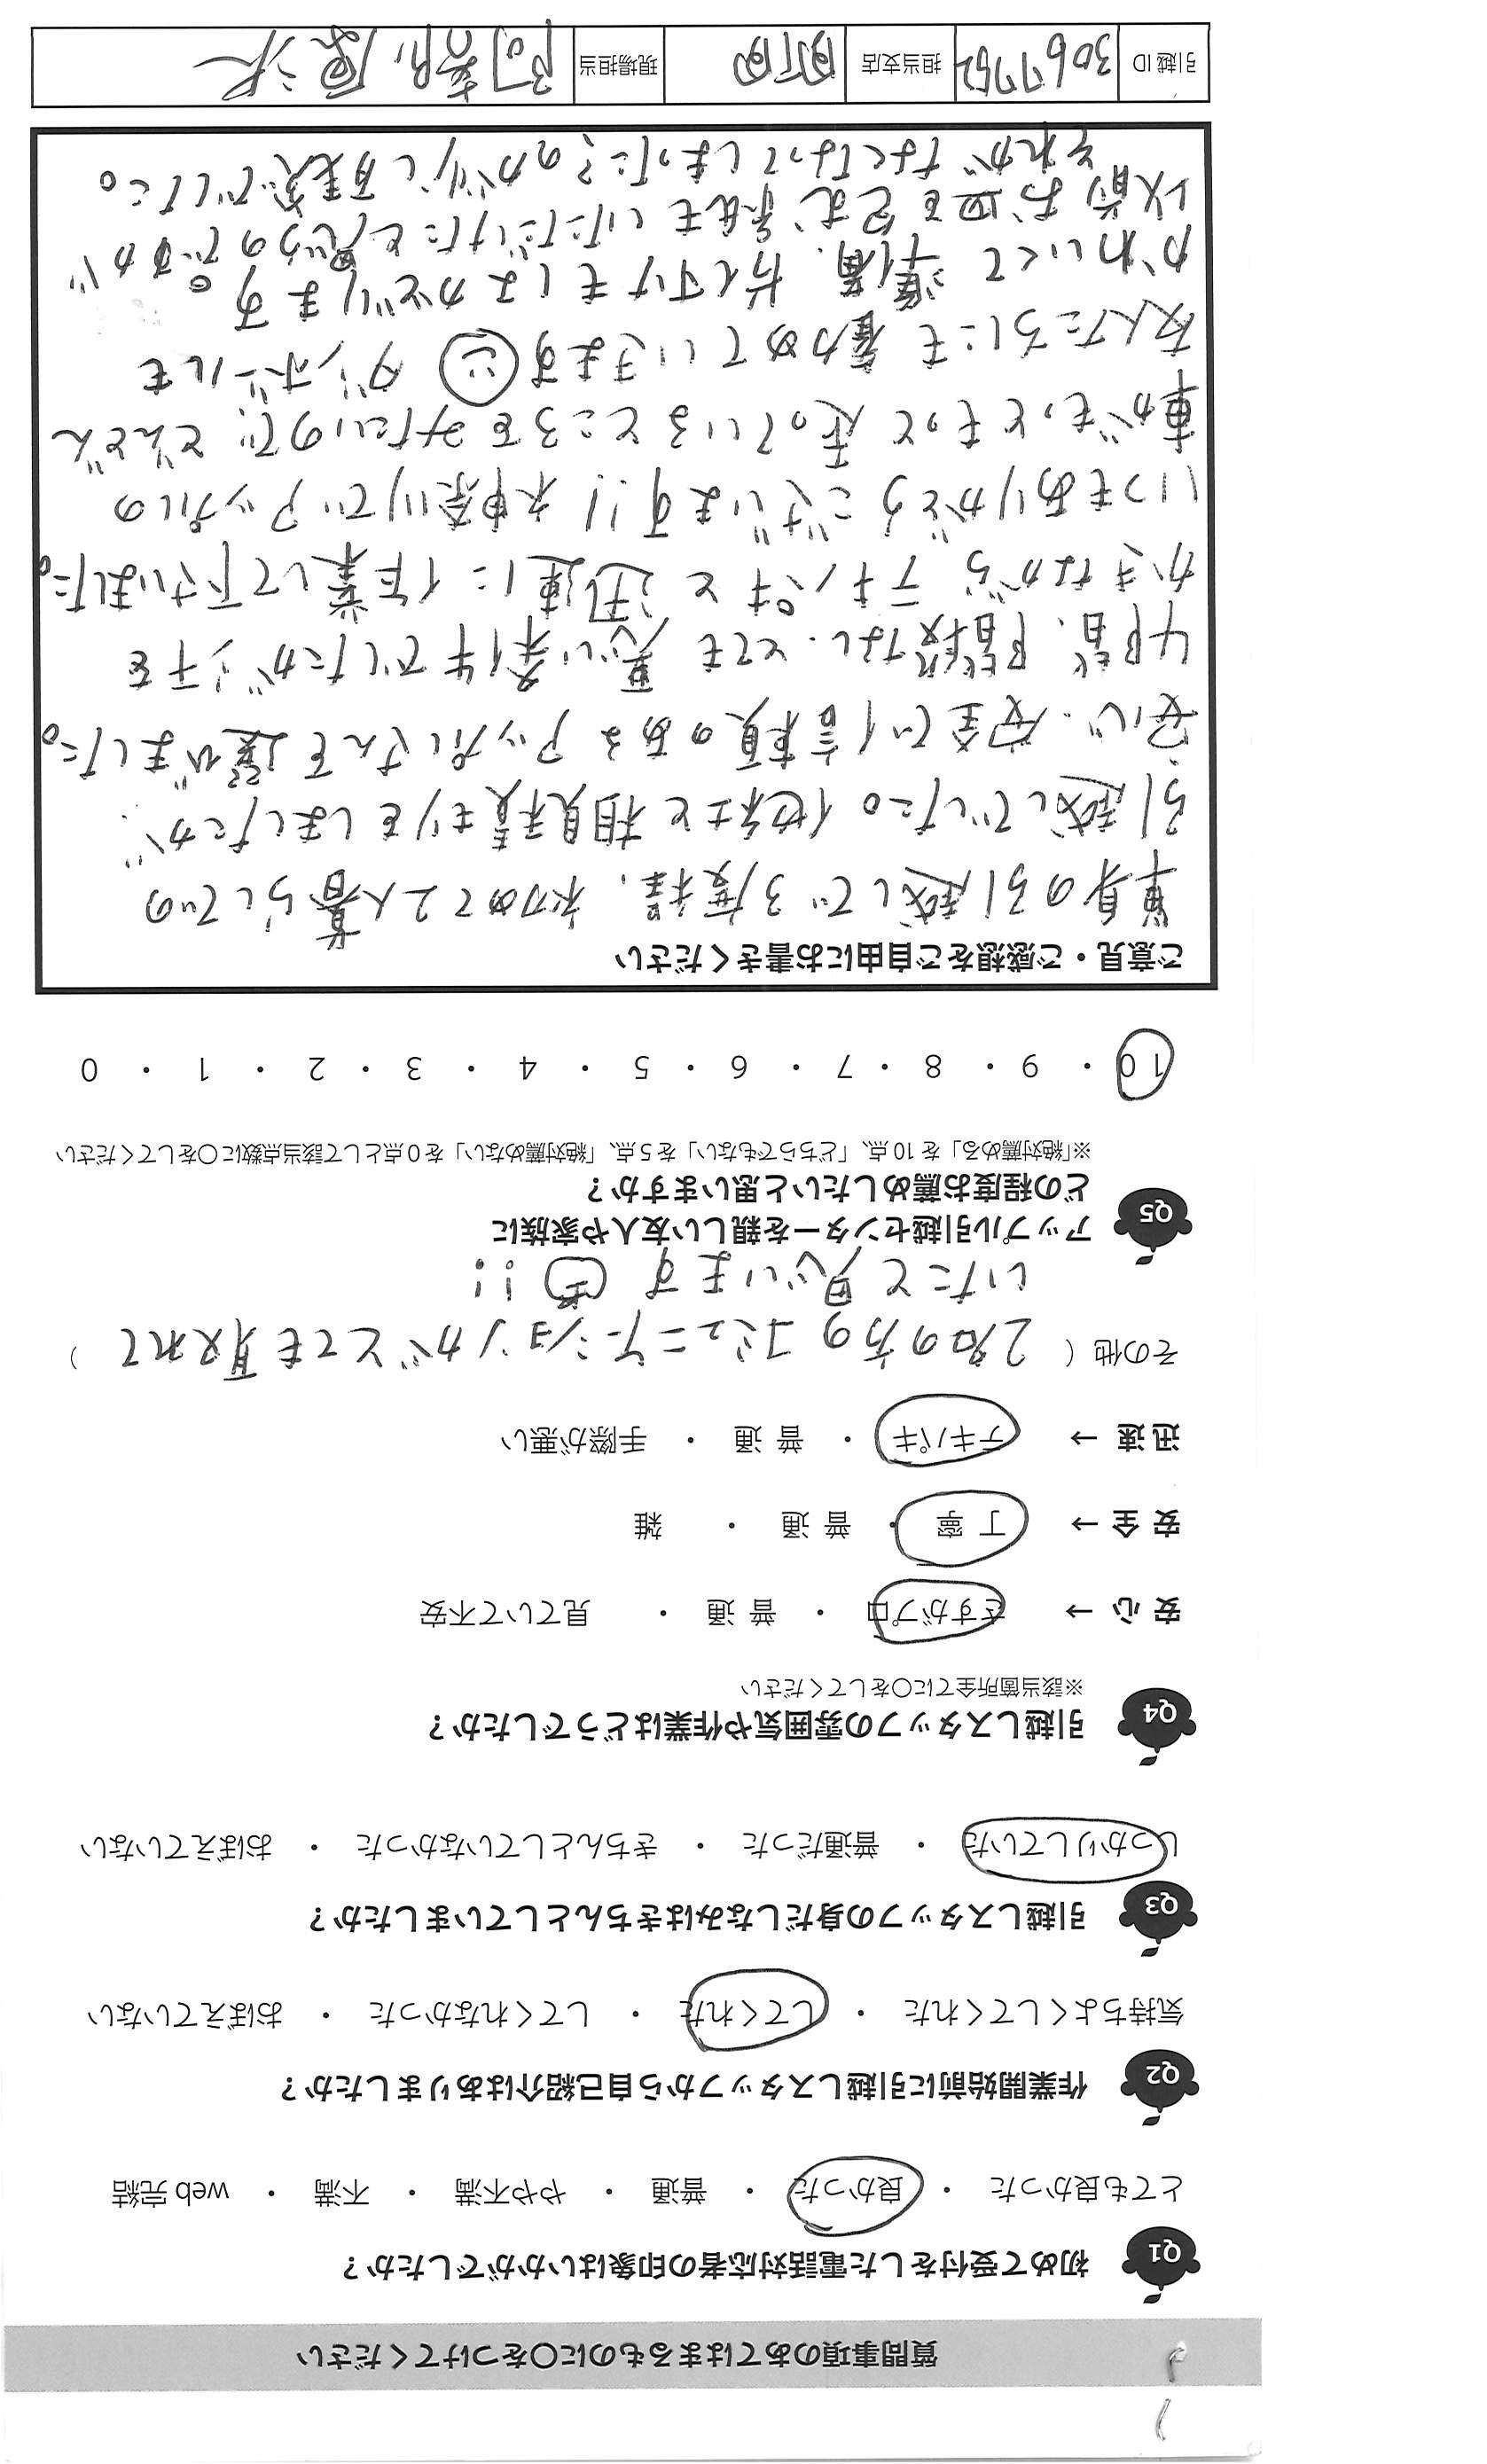 質問事項のあてはまるものに〇をつけてください
Q1 初めて受付をした電話対応者の印象はいかがでしたか？
とても良かった ・ 良かった ・ 普通 ・ やや不満 ・ 不満 ・ web 完結
Q2 作業開始前に引越しスタッフから自己紹介はありましたか？
気持ちよくしてくれた ・ してくれた ・ してくれなかった ・ おぼえていない
Q3 引越しスタッフの身だしなみはきちんとしていましたか？
しっかりしていた ・ 普通だった ・ きちんとしていなかった ・ おぼえていない
Q4 引越しスタッフの雰囲気や作業はどうでしたか？
※該当箇所全てに〇をしてください
安 心 → さすがプロ ・ 普 通 ・ 見ていて不安
安 全 → 丁 寧 ・ 普 通 ・ 雑
迅 速 → テキパキ ・ 普 通 ・ 手際が悪い
その他 ( 2名の方のコミュニケーションがとても取れて )
いたと思います !!
Q5 アップル引越センターを親しい友人や家族に
どの程度お薦めしたいと思いますか？
※「絶対薦める」を 10 点、「どちらでもない」を 5 点、「絶対薦めない」を 0 点として該当点数に〇をしてください
10 ・ 9 ・ 8 ・ 7 ・ 6 ・ 5 ・ 4 ・ 3 ・ 2 ・ 1 ・ 0
ご意見・ご感想をご自由にお書きください
単身の引越しで3度程、初めて2人暮らしでの
引越しでした。他社と相見積もりをしましたが、
安心・安全で信頼のあるアップルさんを選びました。
4階、階段なし、とても悪い条件でしたが汗を
かきながら テキパキと迅速に作業して下さいました。
いつもありがとうございます!! 神奈川でアップルの
車がもっともっと走っているところをみたいので、どんどん
友人たちにも薦めていきます ダンボールも
かわいくて準備、片付けもはかどります。
以前お皿を包む紙もいただけたと思うのですが
それがなくなってしまった?のが少し残念でした。
引越 ID 3067752 担当支店 町田 現場担当